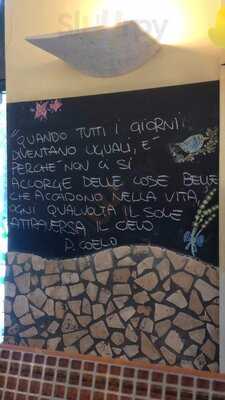 Sluurpy
"QUANDO TUTTI I GIORNI
DIVENTANO UGUALI, E'
PERCHÉ NON CI SI
ACCORGE DELLE COSE BELLE
CHE ACCADONO NELLA VITA,
OGNI QUALVOLTA IL SOLE
ATTRAVERSA IL CIELO
P. COELO